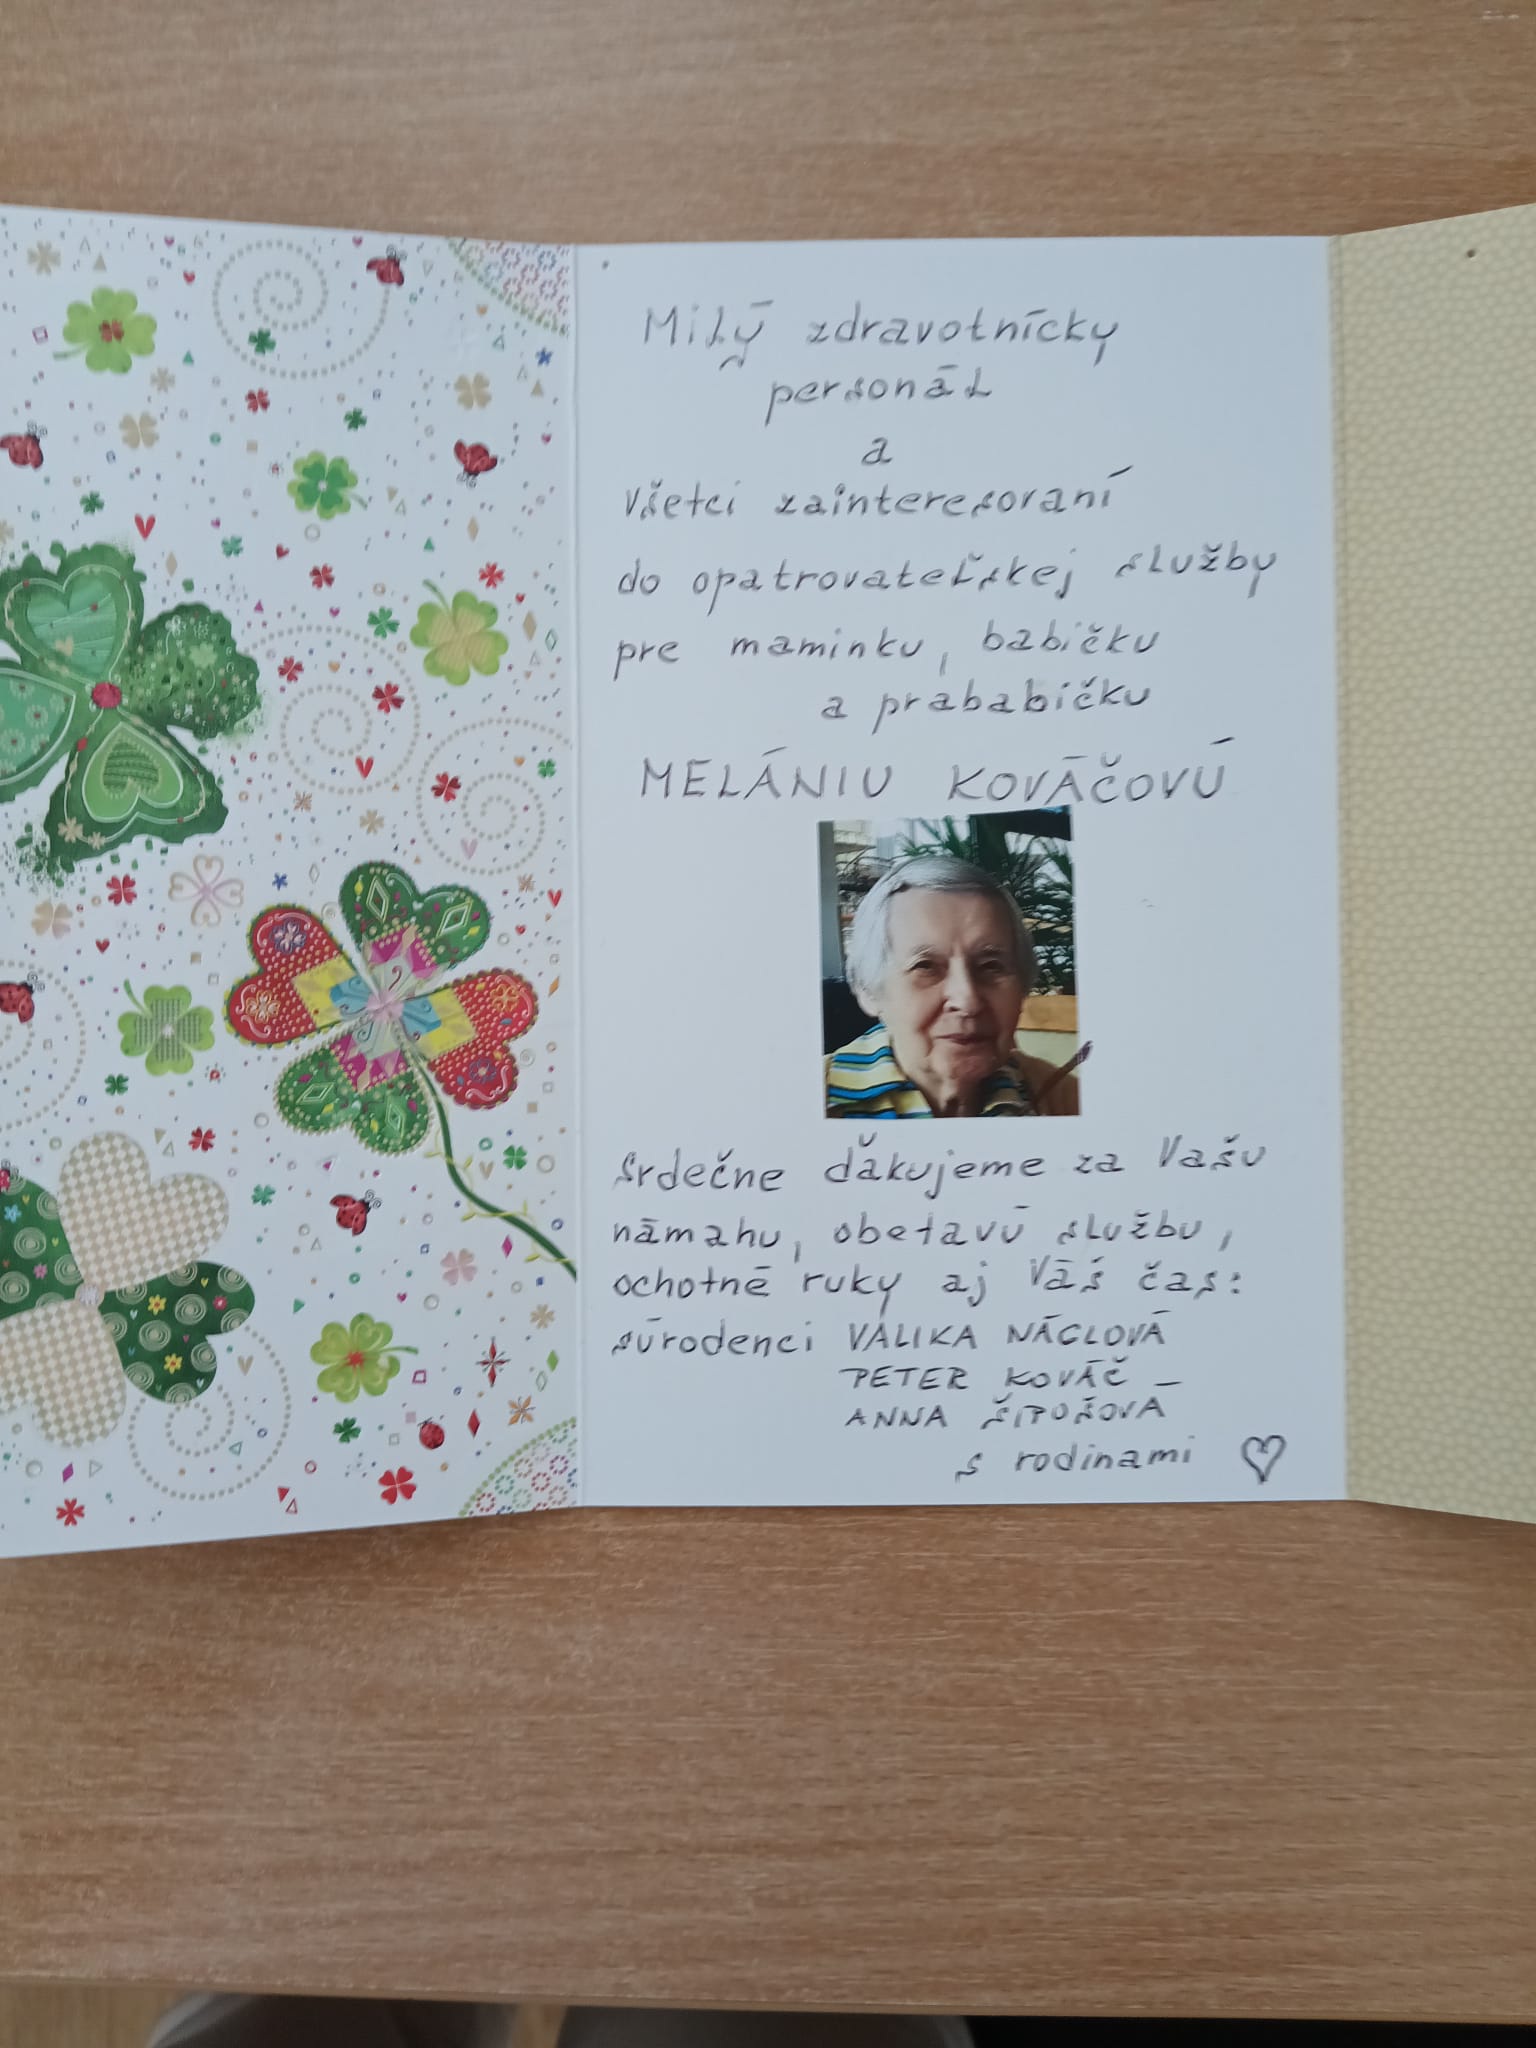 Milý zdravotnícky
personál
a
všetci zainteresovaní
do opatrovateľskej služby
pre maminku, babičku
a prababičku
MELÁNIU KOVÁČOVÚ
Srdečne ďakujeme za Vašu
námahu, obetavú službu,
ochotné ruky aj Váš čas:
súrodenci VALIKA NÁGLOVÁ
PETER KOVÁČ
ANNA ŠIPOŠOVÁ
s rodinami